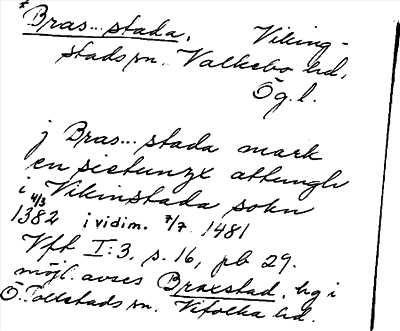 * Bras...stada. Viking-
stads sn. Valkebo hd,
Ög. l.
j Bras...stada mark
en siettungx attungh
i Vikinstada sokn
1382 4/3 i vidim. 7/7 1481
Vfk I:3, s. 16, pb 29.
möjl. avses Braxstad, hg i
Ö. Tollstads sn. Vifolka hd.